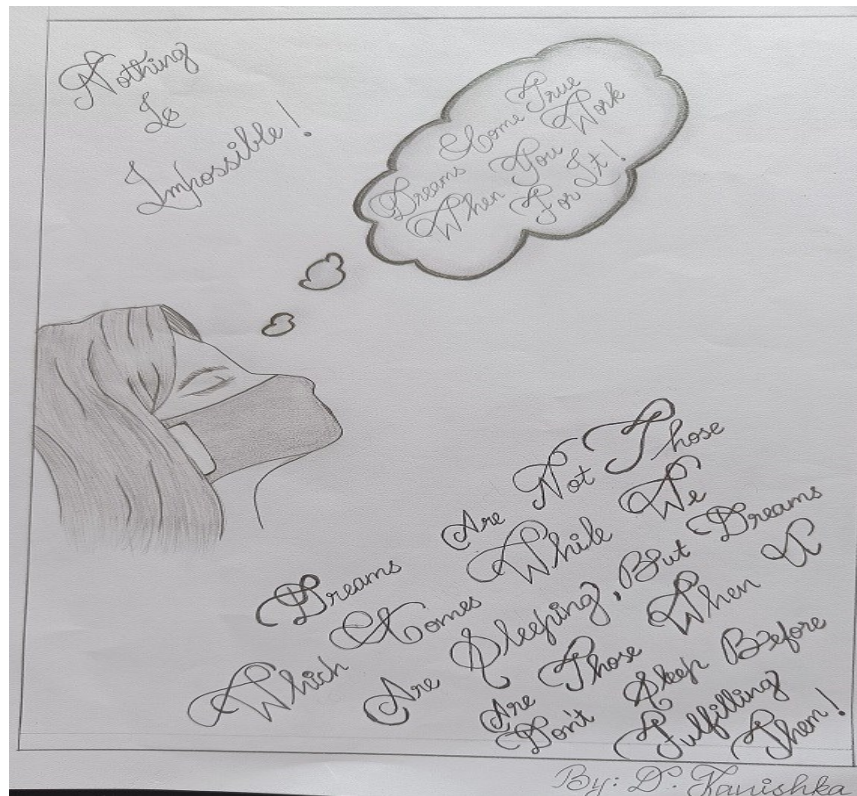 Nothing
Is
Impossible!
Dreams Come True
When You Work
For It!
Dreams Are Not Those
Which Comes While We
Are Sleeping, But Dreams
Are Those When U
Don't Sleep Before
Fulfilling
Them!
By: D. Tanishka